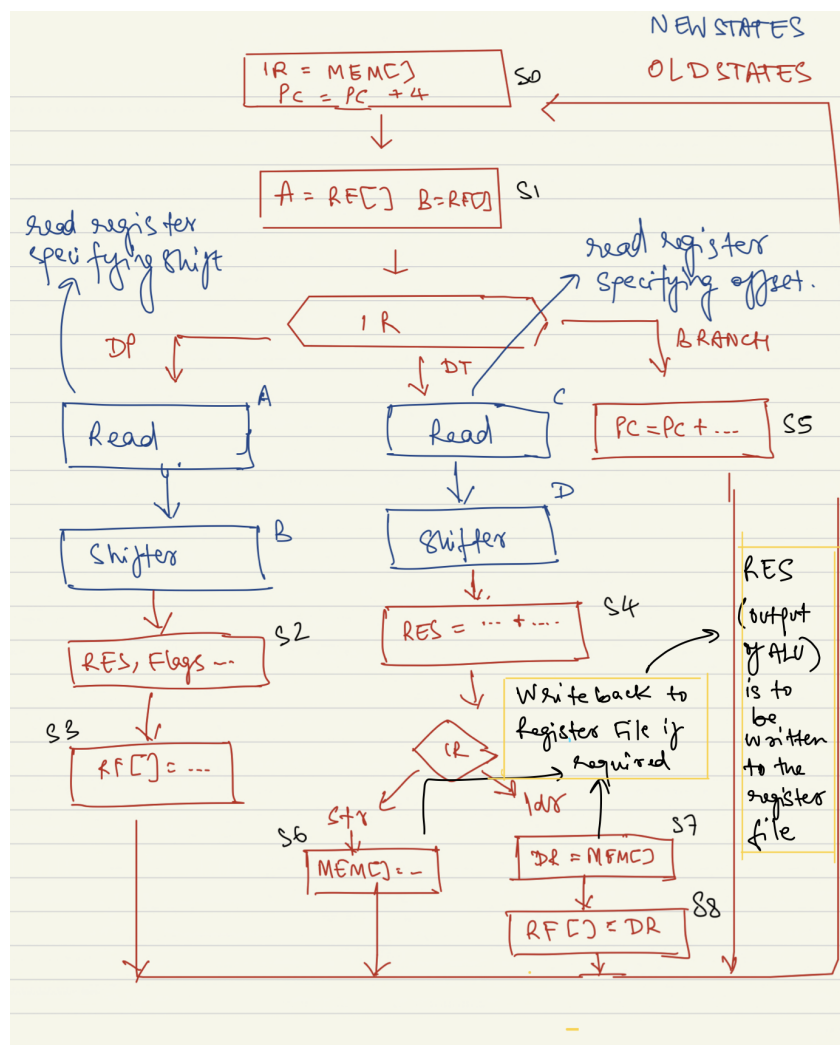 NEW STATES
OLD STATES
IR = MEM[]
PC = PC + 4
S0
A = RF[] B=RF[]
S1
read register
specifying shift
read register
specifying offset.
IR
DP
DT
BRANCH
A
Read
C
Read
PC = PC + ...
S5
B
Shifter
D
Shifter
S2
RES, Flags ...
S4
RES = ... + ....
S3
RF[] = ...
IR
Write back to
Register File if
required
RES
(output
of ALU)
is to
be
written
to the
register
file
str
ldr
S6
MEM[] = ..
S7
DR = MEM[]
S8
RF[] = DR